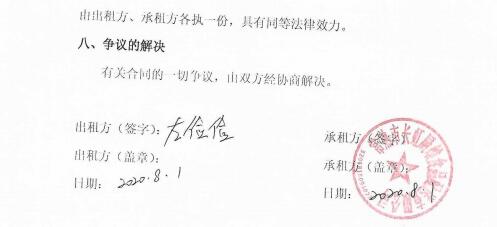 由出租方、承租方各执一份，具有同等法律效力。
八、争议的解决
有关合同的一切争议，由双方经协商解决。
出租方（签字）：左俭俭
承租方（签字）
出租方（盖章）：
承租方（盖章）：
日期： 2020.8.1
日期： 2020.8.1